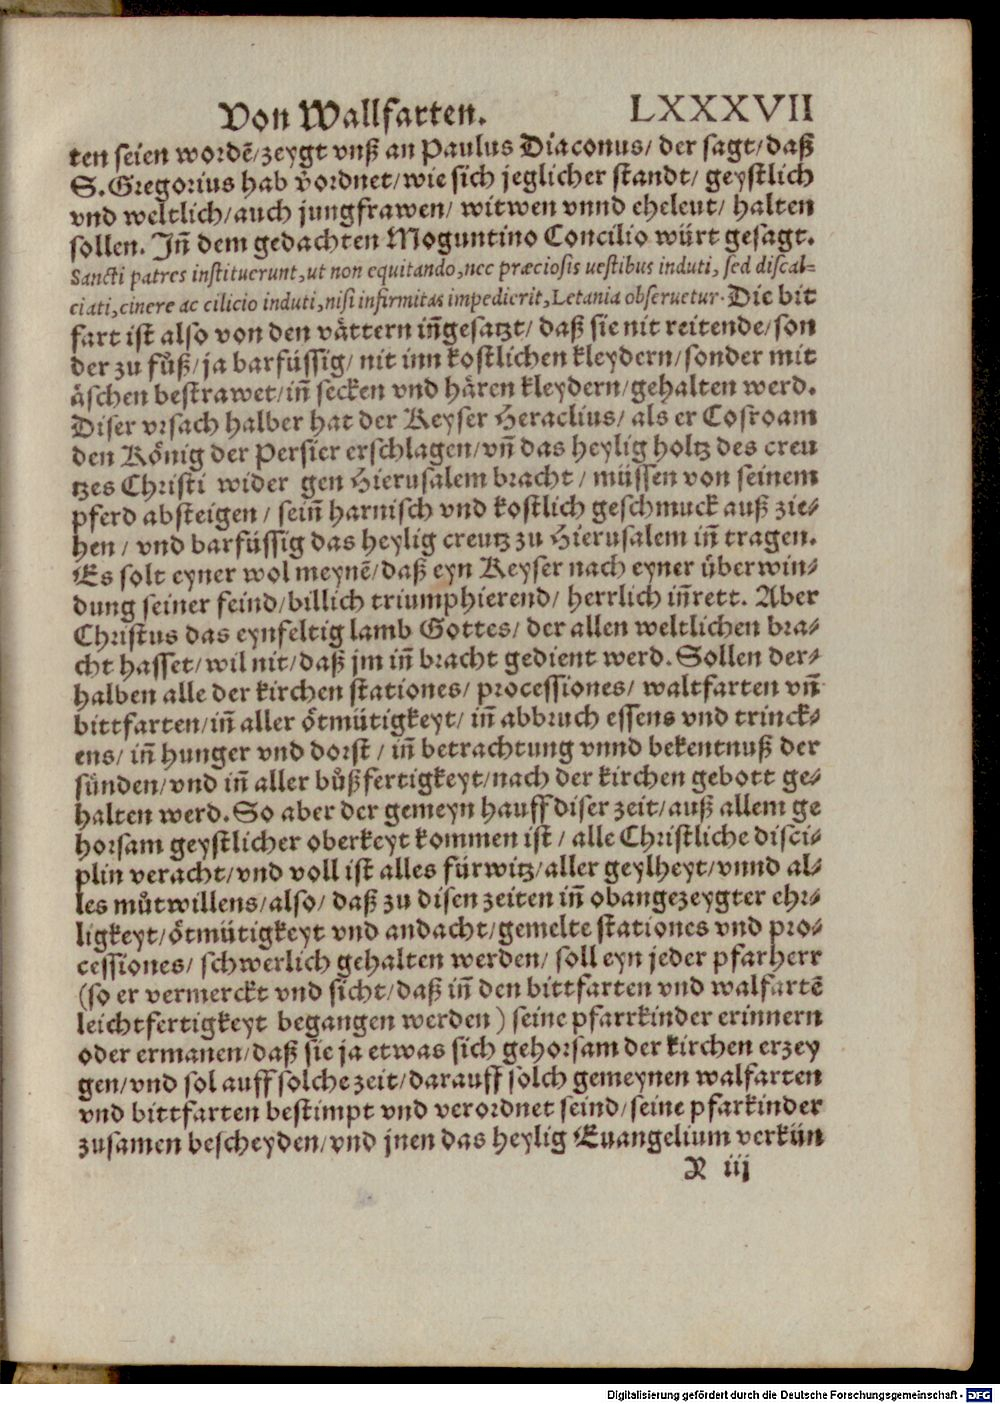 Von Wallfarten. LXXXVII
ten seien wordẽ/zeygt vnß an Paulus Diaconus/ der sagt/daß
S. Gregorius hab v̈ordnet/wie sich jeglicher standt/ geystlich
vnd weltlich/auch jungfrawen/ witwen vnnd eheleut/ halten
sollen. Jñ dem gedachten Moguntino Concilio würt gesagt.
Sancti patres instituerunt, ut non equitando, nec præciosis uestibus induti, sed discal-
ciati, cinere ac cilicio induti, nisi infirmitas impedierit, Letania obseruetur. Die bit
fart ist also von den våttern iñgesatzt/ daß sie nit reitende/son
der zu fůß/ja barfüssig/ nit inn kostlichen kleydern/sonder mit
äschen bestrawet/iñ secken vnd håren kleydern/gehalten werd.
Diser vrsach halber hat der Keyser Heraclius/ als er Cosroam
den König der Persier erschlagen/vñ das heylig holtz des creu
tzes Christi wider gen Hierusalem bracht / müssen von seinem
pferd absteigen / seiñ harnisch vnd kostlich geschmuck auß zie-
hen / vnd barfüssig das heylig creutz zu Hierusalem iñ tragen.
Es solt eyner wol meynẽ/daß eyn Keyser nach eyner überwin-
dung seiner feind/billich triumphierend/ herrlich iñrett. Aber
Christus das eynfeltig lamb Gottes/ der allen weltlichen bra-
cht hasset/wil nit/daß jm iñ bracht gedient werd. Sollen der-
halben alle der kirchen stationes/ processiones/ waltfarten vñ
bittfarten/iñ aller ötmütigkeyt/ iñ abbruch essens vnd trinck-
ens/ iñ hunger vnd dorst / iñ betrachtung vnnd bekentnuß der
sünden/vnd iñ aller bůßfertigkeyt/nach der kirchen gebott ge-
halten werd. So aber der gemeyn hauff diser zeit/auß allem ge
horsam geystlicher oberkeyt kommen ist / alle Christliche disci-
plin veracht/vnd voll ist alles fürwitz/aller geylheyt/vnnd al-
les můtwillens/also/ daß zu disen zeiten iñ obangezeygter ehr-
ligkeyt/ötmütigkeyt vnd andacht/gemelte stationes vnd pro-
cessiones/ schwerlich gehalten werden/ soll eyn jeder pfarherr
(so er vermerckt vnd sicht/daß iñ den bittfarten vnd walfartẽ
leichtfertigkeyt begangen werden) seine pfarrkinder erinnern
oder ermanen/daß sie ja etwas sich gehorsam der kirchen erzey
gen/vnd sol auff solche zeit/darauff solch gemeynen walfarten
vnd bittfarten bestimpt vnd verordnet seind/seine pfarkinder
zusamen bescheyden/vnd jnen das heylig Euangelium verkün
R iij
Digitalisierung gefördert durch die Deutsche Forschungsgemeinschaft - DFG